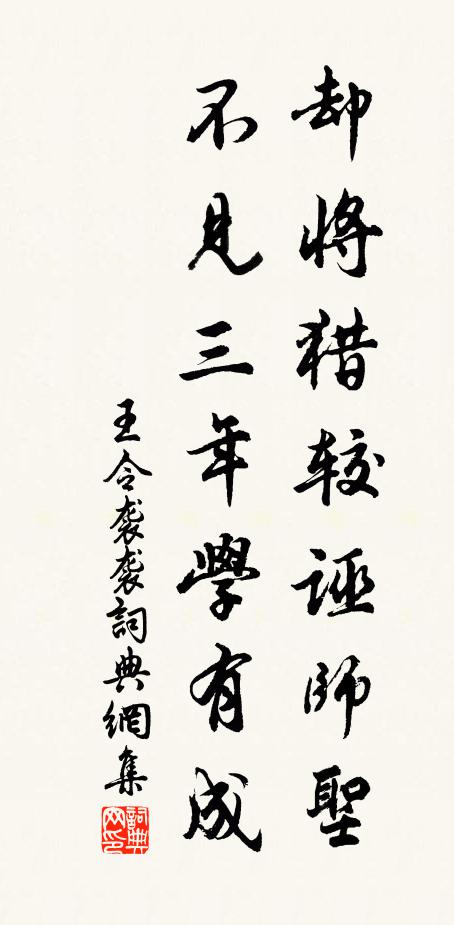 却將猎较誣師聖
不見三年學有成
王令袭袭詞典網集
詞典网印